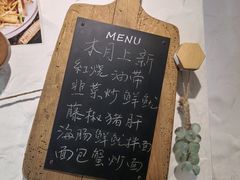 MENU
本月上新
紅燒油带
韭菜炒鲜鱿
藤椒猪肝
海肠鲜鱿拌面
面包蟹炒面